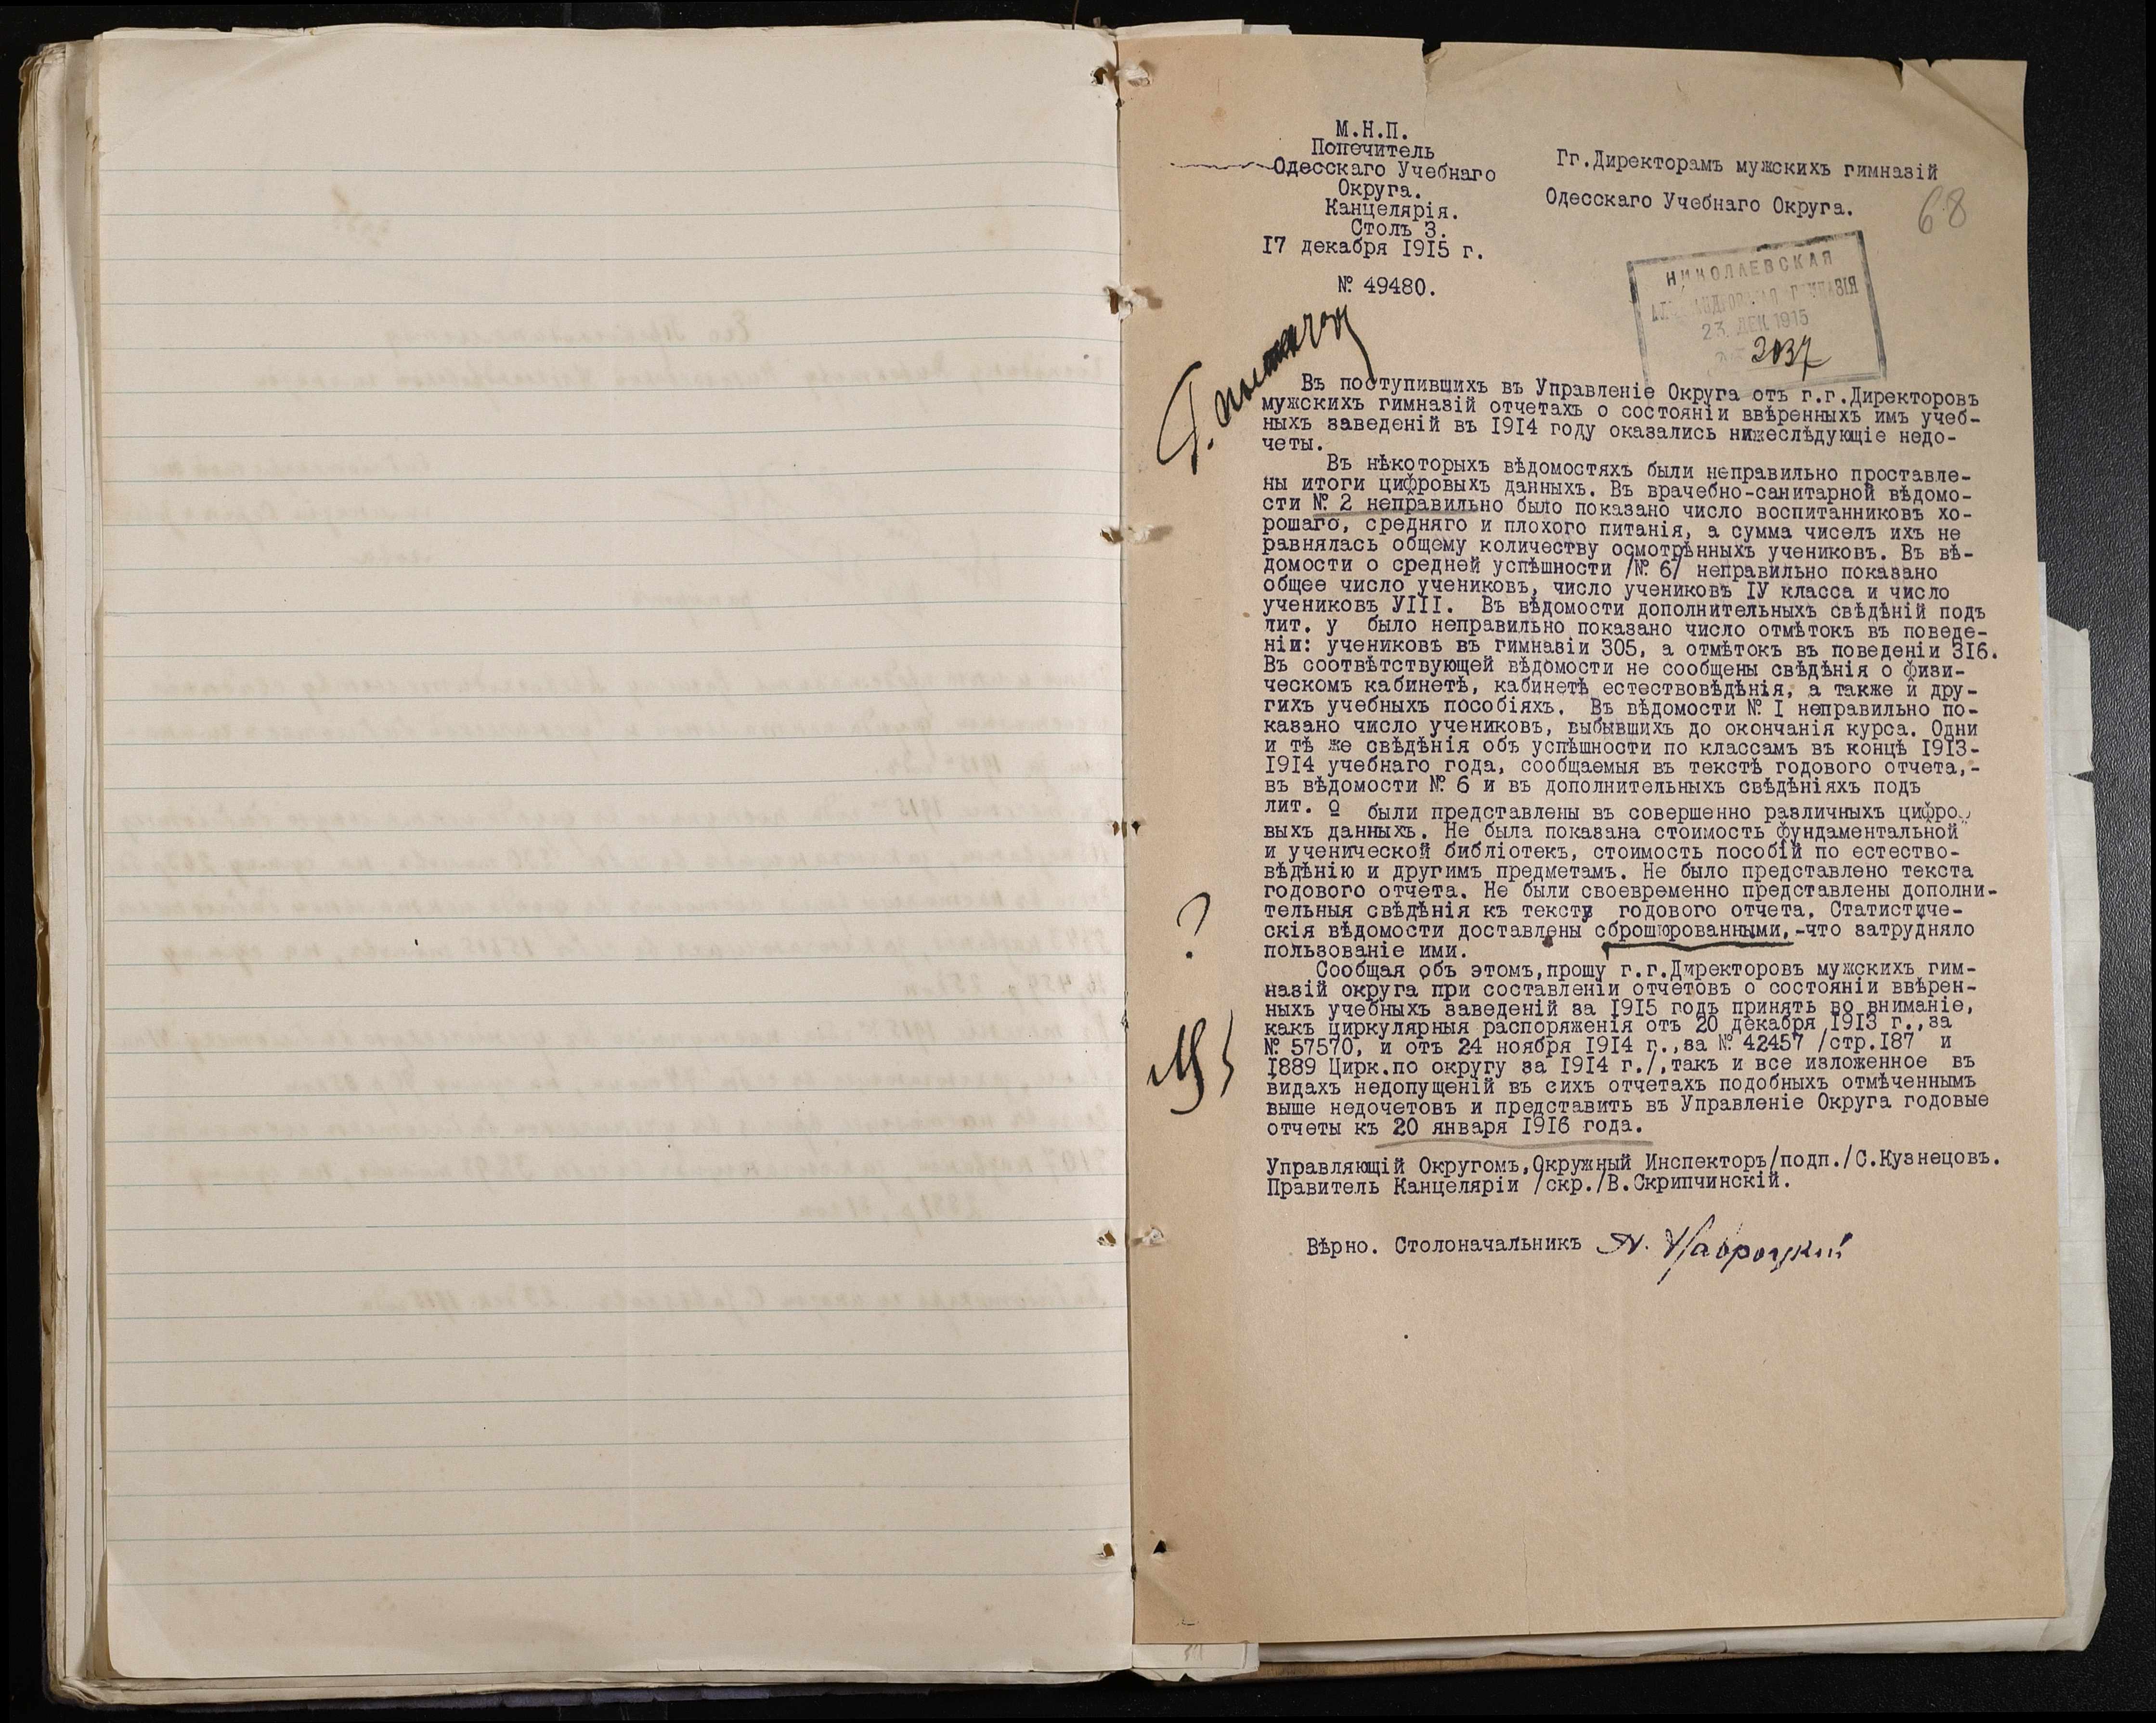 М.Н.П.
Попечитель
Одесскаго Учебнаго
Округа.
Канцелярія.
Столъ 3.
17 декабря 1915 г.
№ 49480.
Гг.Директорамъ мужскихъ гимназій
Одесскаго Учебнаго Округа.
68
НИКОЛАЕВСКАЯ
АЛЕКСАНДРОВСКАЯ ГИМНАЗІЯ
23. ДЕК. 1915
2037
Въ поступившихъ въ Управленіе Округа отъ г.г.Директоровъ
мужскихъ гимназій отчетахъ о состояніи ввѣренныхъ имъ учеб-
ныхъ заведеній въ 1914 году оказались нижеслѣдующіе недо-
четы.
Въ нѣкоторыхъ вѣдомостяхъ были неправильно проставле-
ны итоги цифровыхъ данныхъ. Въ врачебно-санитарной вѣдомо-
сти № 2 неправильно было показано число воспитанниковъ хо-
рошаго, средняго и плохого питанія, а сумма чиселъ ихъ не
равнялась общему количеству осмотрѣнныхъ учениковъ. Въ вѣ-
домости о средней успѣшности /№ 6/ неправильно показано
общее число учениковъ, число учениковъ IУ класса и число
учениковъ УIII. Въ вѣдомости дополнительныхъ свѣдѣній подъ
лит. у было неправильно показано число отмѣтокъ въ поведе-
ніи: учениковъ въ гимназіи 305, а отмѣтокъ въ поведеніи 316.
Въ соотвѣтствующей вѣдомости не сообщены свѣдѣнія о физи-
ческомъ кабинетѣ, кабинетѣ естествовѣдѣнія, а также и дру-
гихъ учебныхъ пособіяхъ. Въ вѣдомости № I неправильно по-
казано число учениковъ, выбывшихъ до окончанія курса. Одни
и тѣ же свѣдѣнія объ успѣшности по классамъ въ концѣ 1913-
1914 учебнаго года, сообщаемыя въ текстѣ годового отчета,-
въ вѣдомости № 6 и въ дополнительныхъ свѣдѣніяхъ подъ
лит. о были представлены въ совершенно различныхъ цифро
выхъ данныхъ. Не была показана стоимость фундаментальной
и ученической библіотекъ, стоимость пособій по естество-
вѣдѣнію и другимъ предметамъ. Не было представлено текста
годового отчета. Не были своевременно представлены дополни-
тельныя свѣдѣнія къ тексту годового отчета. Статистиче-
скія вѣдомости доставлены сброшюрованными,-что затрудняло
?
пользованіе ими.
Сообщая объ этомъ,прошу г.г.Директоровъ мужскихъ гим-
назій округа при составленіи отчетовъ о состояніи ввѣрен-
ныхъ учебныхъ заведеній за 1915 годъ принять во вниманіе,
какъ циркулярныя распоряженія отъ 20 декабря 1913 г.,за
№ 57570, и отъ 24 ноября 1914 г.,за № 42457 /стр.187 и
1889 Цирк.по округу за 1914 г./,такъ и все изложенное въ
видахъ недопущеній въ сихъ отчетахъ подобныхъ отмѣченнымъ
выше недочетовъ и представить въ Управленіе Округа годовые
отчеты къ 20 января 1916 года.
Управляющій Округомъ,Окружный Инспекторъ/подп./С.Кузнецовъ.
Правитель Канцеляріи /скр./В.Скрипчинскій.
Вѣрно. Столоначальникъ